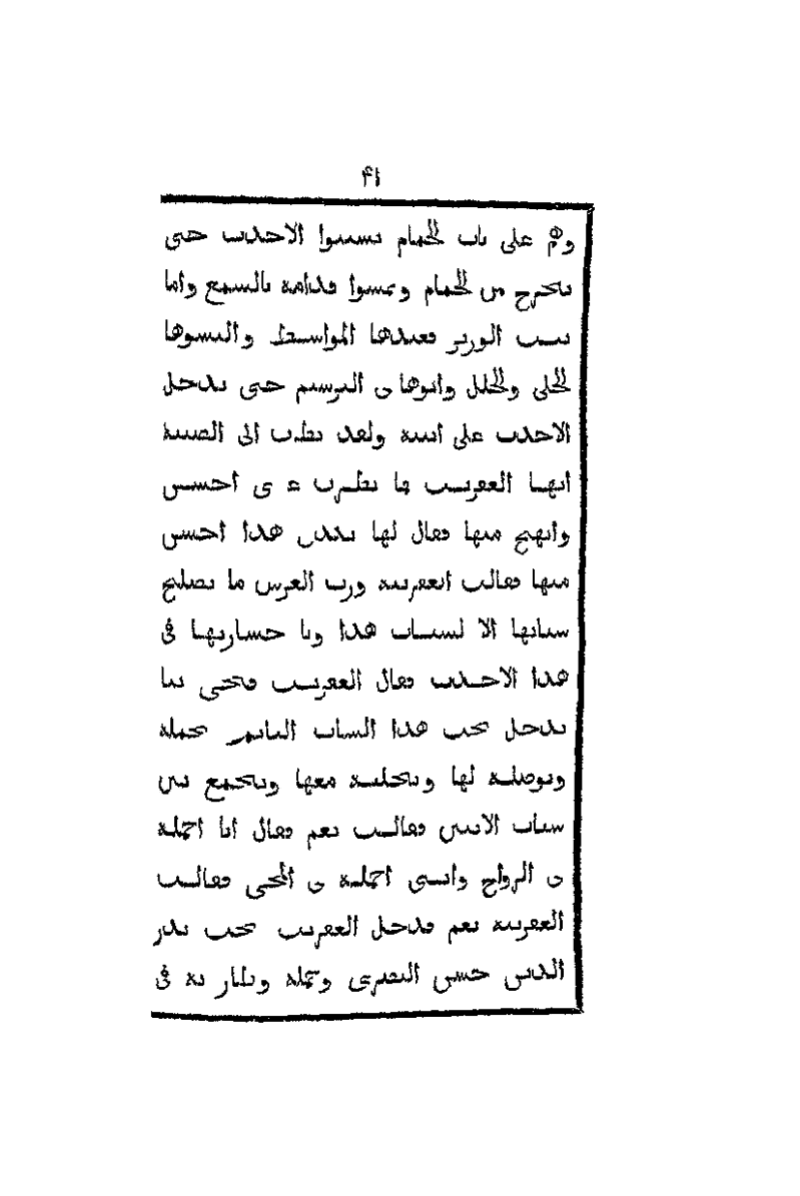 ٤١
وهم على باب الحمام يستنوا الاحدب حتى
يخرج من الحمام ويمشوا قدامه بالشمع واما
بنت الوزير فعندها المواشط والبسوها
الحلى والحلل واتوها فى الترسيم حتى يدخل
الاحدب على ابنته ولقد نظرت الى الصبية
ايها العفريت فما نظرت احسن
وابهج منها فقال لها بل هذا احسن
منها فقالت العفريته ورب العرش ما تصلح
شبابها الا لشباب هذا ويا خسارتها فى
هذا الاحدب فقال العفريت فتجى بنا
ندخل تحت هذا الشاب النايم نحمله
ونوصله لها ونخليه معها ونجمع بين
شباب الاثنين فقالت نعم فقال انا احمله
فى الرواح وانتى احمليه فى المجى فقالت
العفريته نعم فدخل العفريت تحت بدر
الدين حسن البصرى وحمله وطار به فى